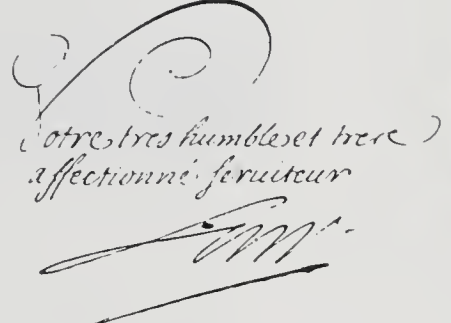 Votre tres humble et tres
affectionné seruiteur